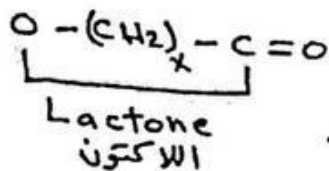 O – (CH2)x – C = O
Lactone
اللاكتون